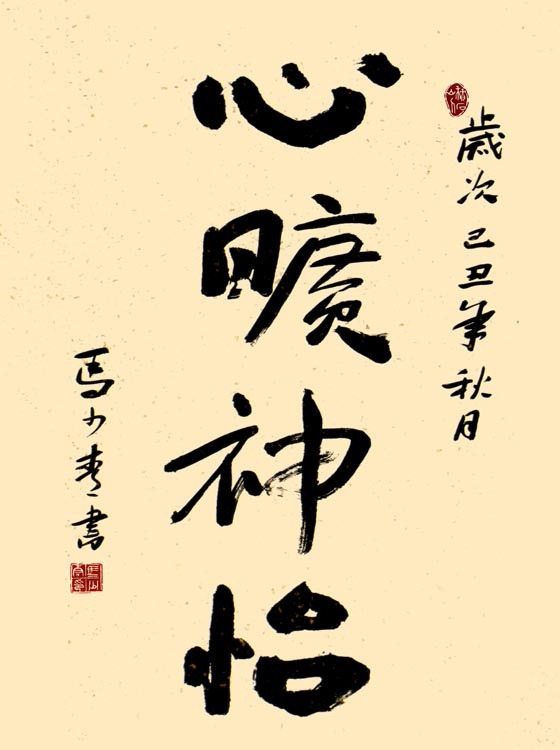 歲次己丑年秋月
心曠神怡
馬少青書